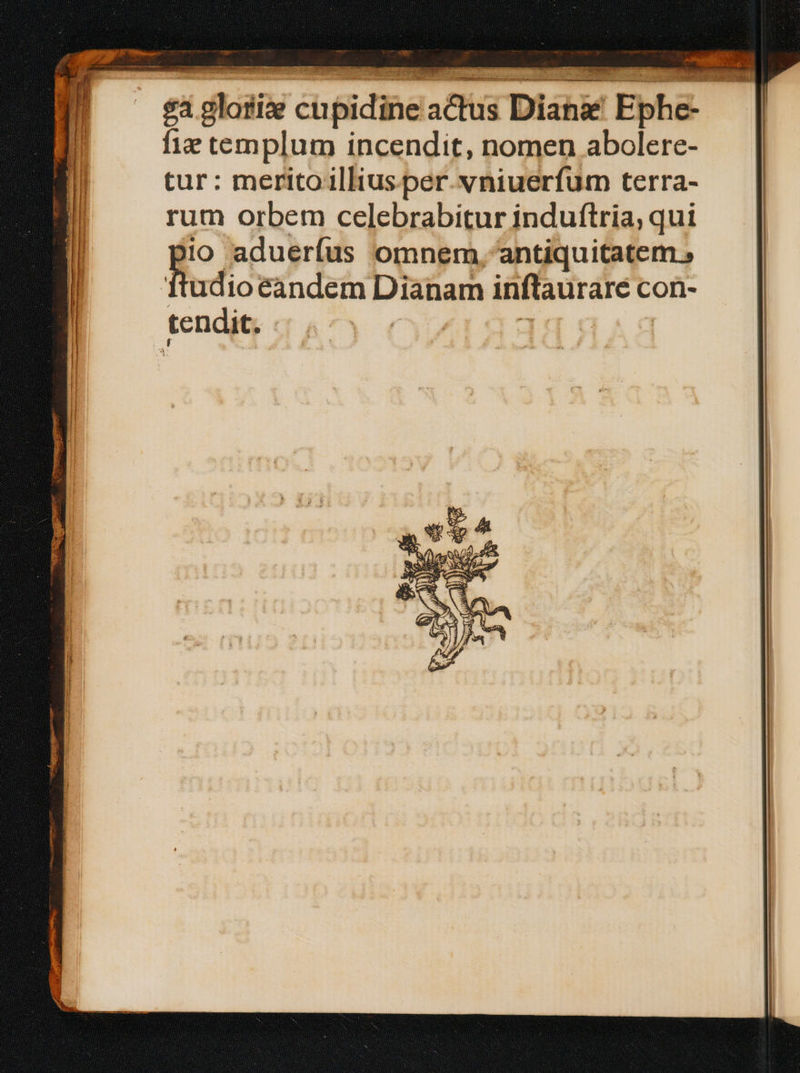 ga gloriæ cupidine actus Dianæ Ephe-
ſiæ templum incendit, nomen abolere-
tur: merito illius per vniuerſum terra-
rum orbem celebrabitur induſtria, qui
pio aduerſus omnem antiquitatem,
ſtudio eandem Dianam inſtaurare con-
tendit.